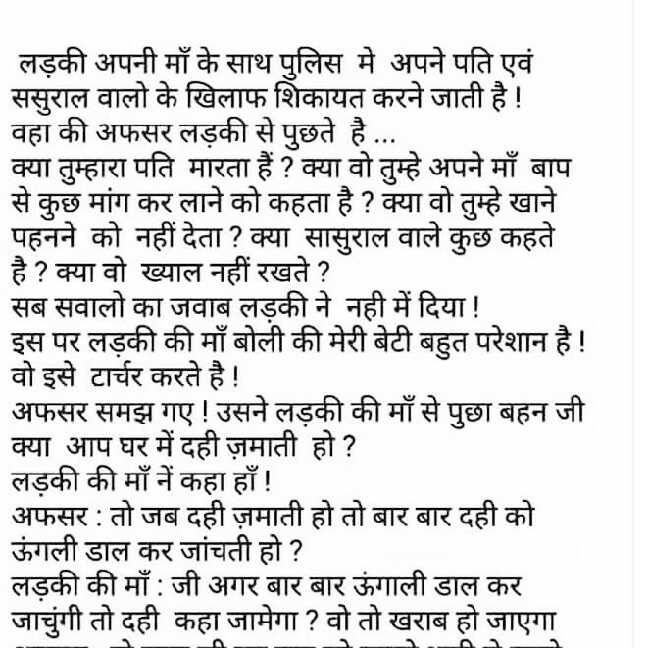 लड़की अपनी माँ के साथ पुलिस मे अपने पति एवं
ससुराल वालो के खिलाफ शिकायत करने जाती है !
वहा की अफसर लड़की से पुछते है ...
क्या तुम्हारा पति मारता हैं ? क्या वो तुम्हे अपने माँ बाप
से कुछ मांग कर लाने को कहता है ? क्या वो तुम्हे खाने
पहनने को नहीं देता ? क्या सासुराल वाले कुछ कहते
है ? क्या वो ख्याल नहीं रखते ?
सब सवालो का जवाब लड़की ने नही में दिया !
इस पर लड़की की माँ बोली की मेरी बेटी बहुत परेशान है !
वो इसे टार्चर करते है !
अफसर समझ गए ! उसने लड़की की माँ से पुछा बहन जी
क्या आप घर में दही ज़माती हो ?
लड़की की माँ नें कहा हाँ !
अफसर : तो जब दही ज़माती हो तो बार बार दही को
ऊंगली डाल कर जांचती हो ?
लड़की की माँ : जी अगर बार बार ऊंगाली डाल कर
जाचुंगी तो दही कहा जामेगा ? वो तो खराब हो जाएगा